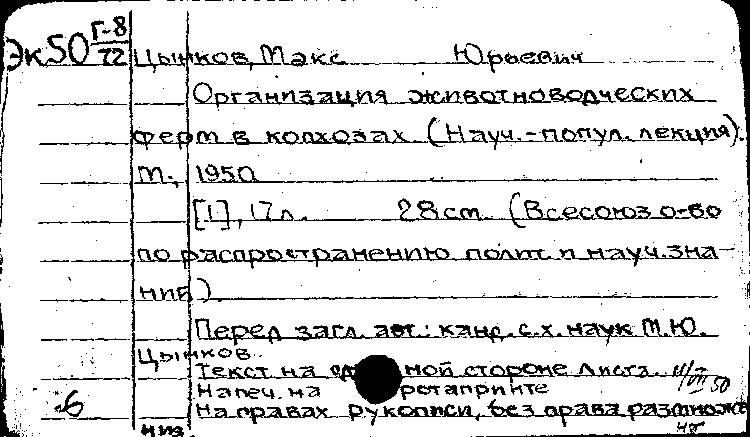 Эк50 Г-8/72 Цынков, Макс Юрьевич
Организация животноводческих
ферм в колхозах (Науч.-попул. лекция).
М., 1950
[1], 17 л. 28 см. (Всесоюз о-во
по распространению полит. и науч. зна-
ний)
Перед загл. авт.: канд. с.х. наук М.Ю.
Цынков.
Текст на одной стороне листа.
Напеч. на ротапринте
-6 На правах рукописи, без права размнож
ния